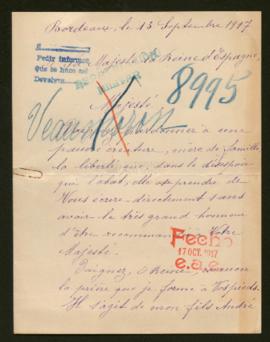 Bordeaux, le 13 Septembre 1917
Sa Majesté la Reine d'Espagne,
Pedir informes,
que se hace así
Devuelvase
8995
Majesté
Veuillez pardonner à une
pauvre créature, mère de famille
la liberté que, dans le désespoir
qui l'abat, elle ose prendre de
Vous écrire directement sans
avoir le très grand honneur
d'être recommandée à Votre
Majesté.
Fecho
17 OCT. 1917
Daignez, ô Reine,
la prière que je forme à Vos pieds.
Il s'agit de mon fils André